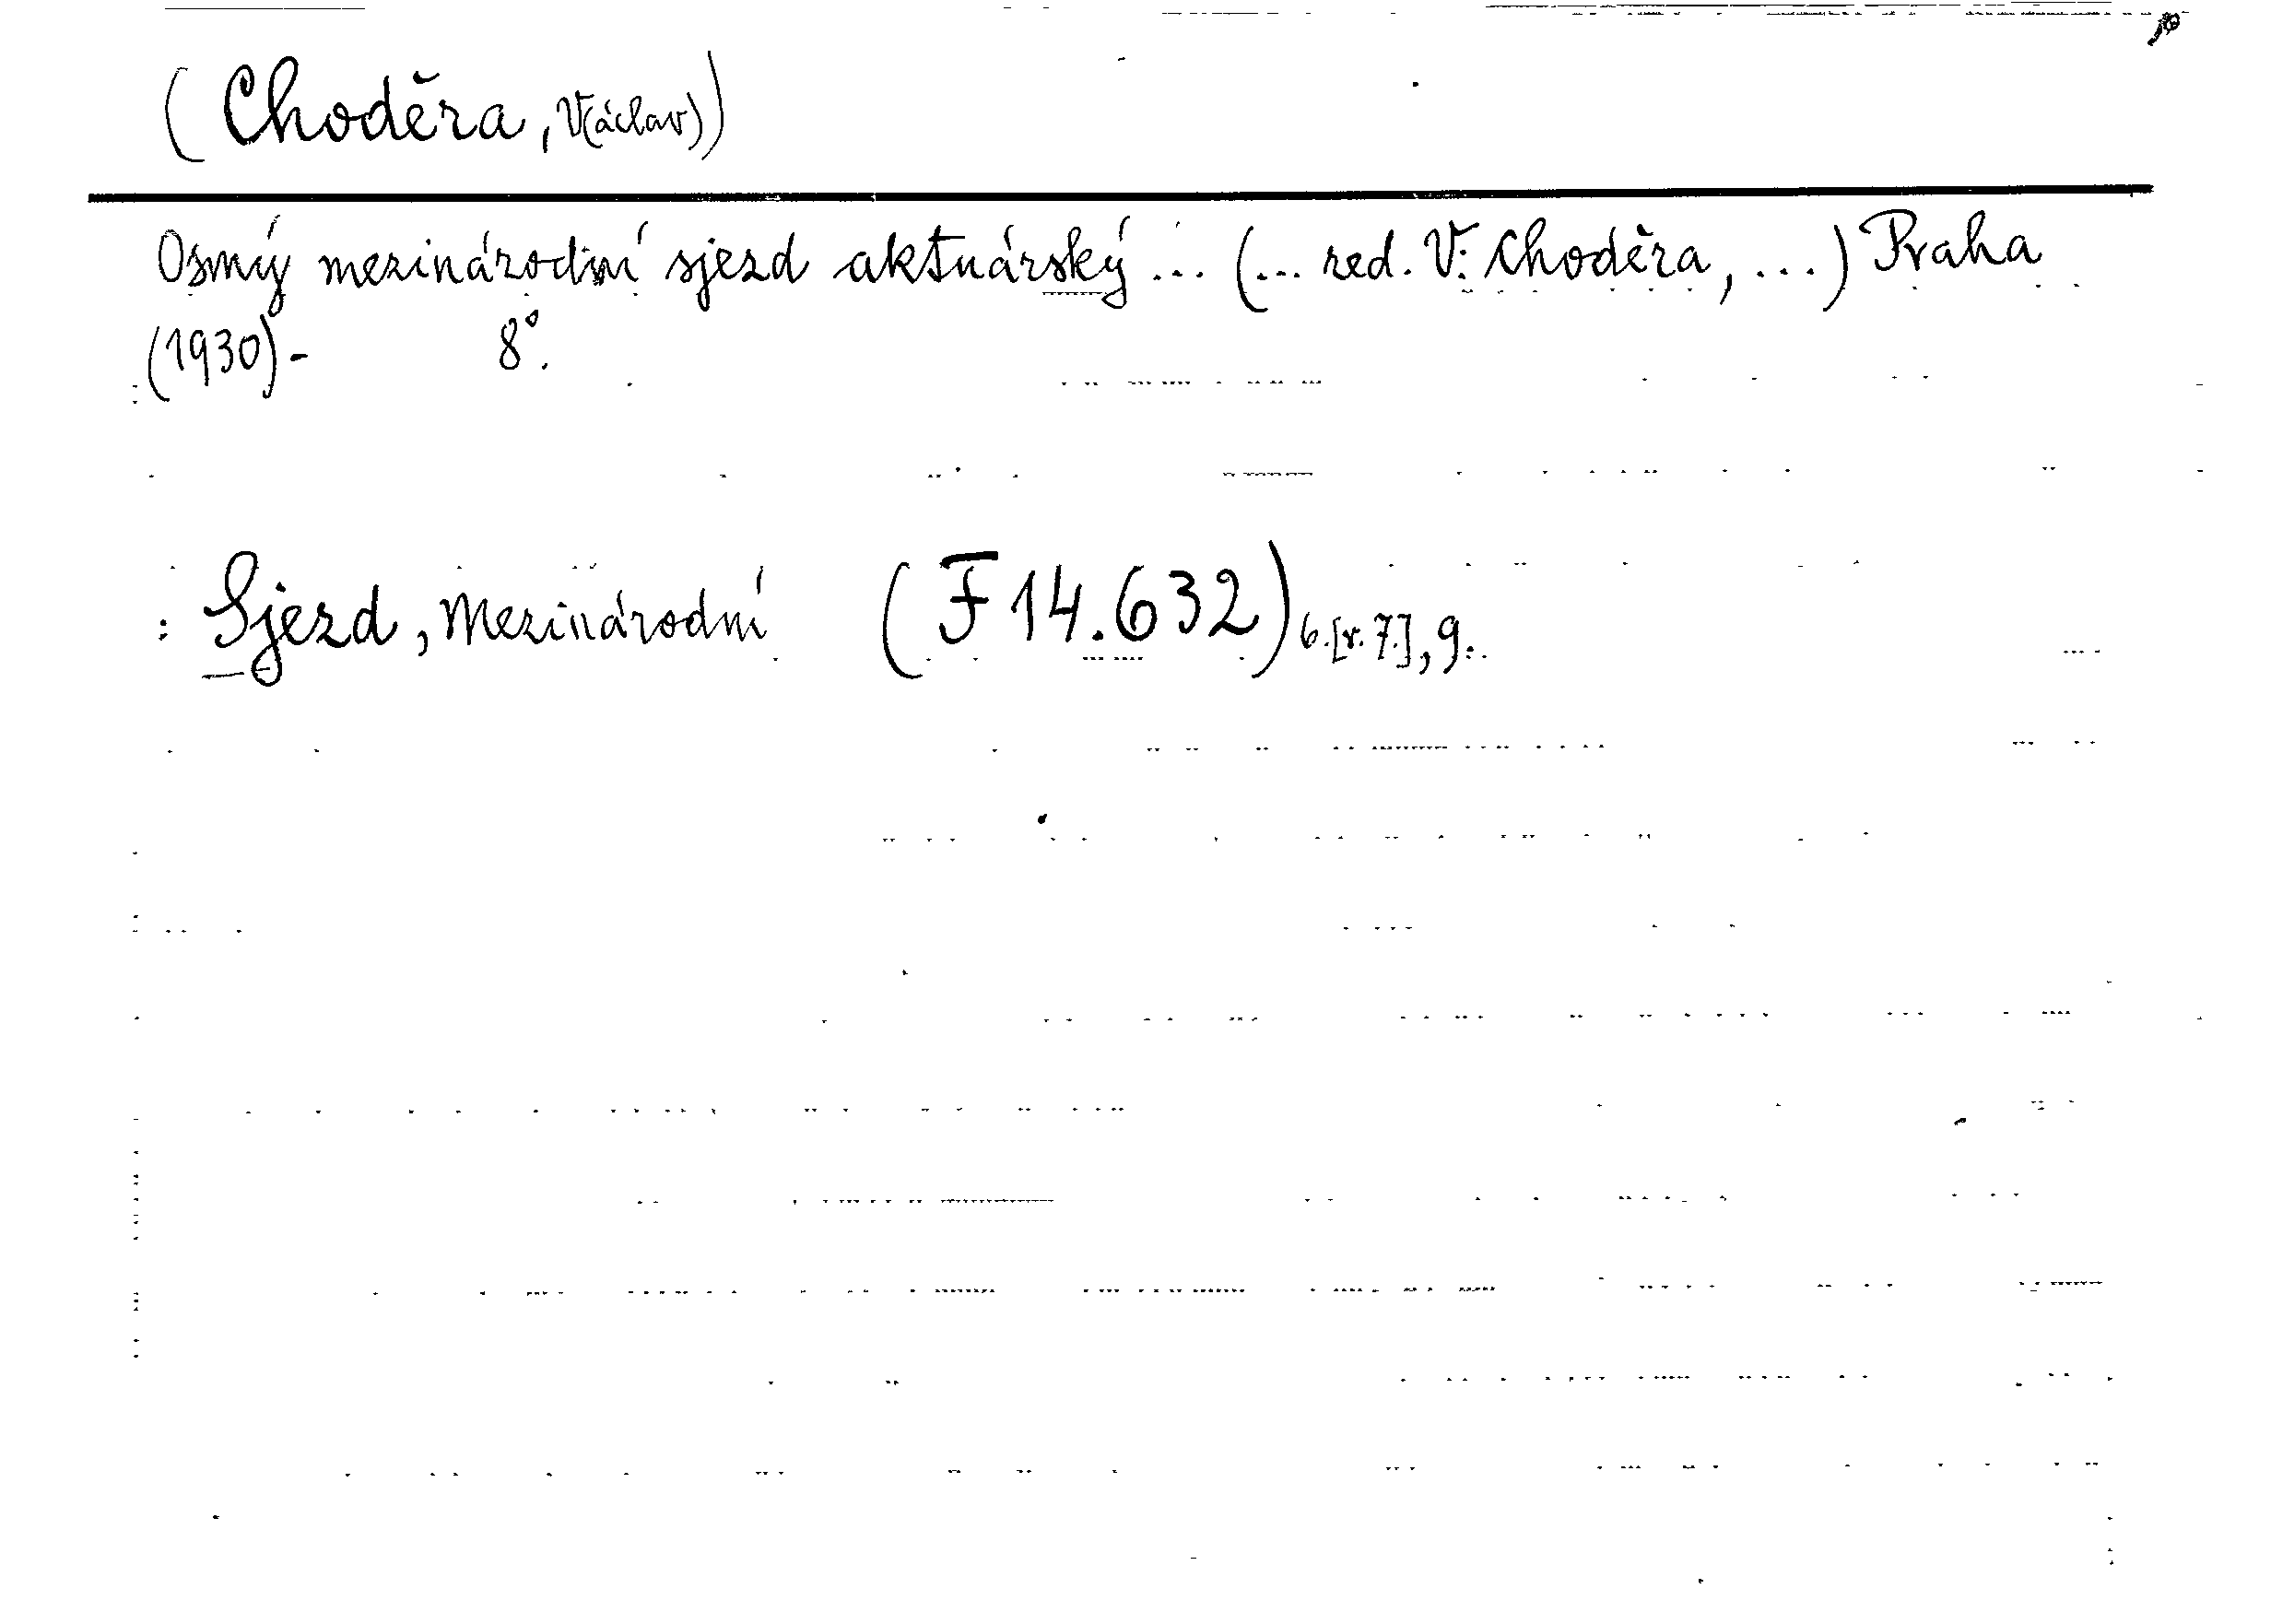 (Choděra, V(áclav))
Osmý mezinárodní sjezd aktuárský ... (... red. V. Choděra, ...) Praha
(1930)- 8°.
: Sjezd, Mezinárodní (F 14.632) 6.[r.7.], 9.